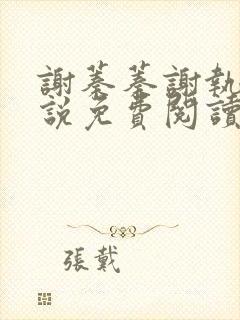 謝蓁蓁謝執
說免費閱讀
張戴